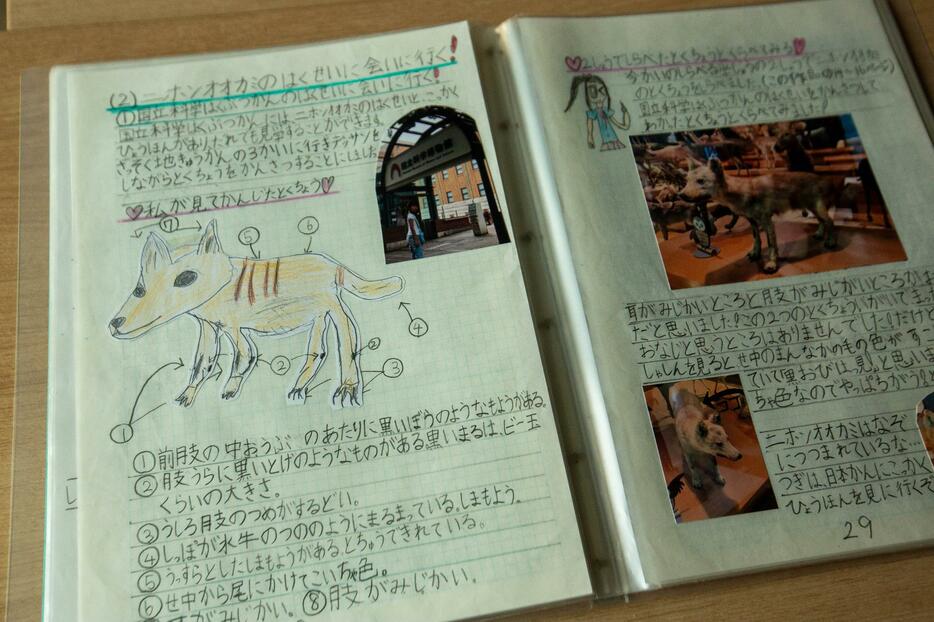 (2) ニホンオオカミのはくせいに会いに行く!
①国立科学はくぶつかんのはくせいに会いに行く!
国立科学はくぶつかんには、ニホンオオカミのはくせいとこっかく
ひょうほんがあり、だれでも見学することができます。
さっそく地きゅうかんの3かいに行きデッサンを
しながらとくちょうをかんさつすることにしました
♡私が見てかんじたとくちょう♡
⑦
⑤
⑥
④
②
②
③
①
国立科学博物館
①前肢の中おうぶのあたりに黒いぼうのようなもようがある。
②肢うらに黒いとげのようなものがある黒いまるは、ビー玉
くらいの大きさ。
③うしろ肢のつめがするどい。
④しっぽが水牛のつののようにまるまっている。しまもよう。
⑤うっすらとしたしまもようがあるとちゅうできれている。
⑥せ中から尾にかけてこい茶色。
がみじかい。⑧肢がみじかい。
♡2しゅうでしらべたとくちょうとくらべてみる♡
のとくちょうをしらべました
国立科学はくぶつかんのはくせいをかんさつして
わかったとくちょうとくらべてみました
耳がみじかいところと肢がみじかいところがお
だと思いました!この2つのとくちょうがいてま
おなじと思うところはありませんでした!だけど
しゃしんを見るとせ中のまんなかのもの色がすっ
ていて黒おびは、見えと思いま
ちゃ色なのでやっぱちがう!と
ニホンオオカミはなぞ
につつまれているな…
つぎは、日本かんにこっかく
ひょうほんを見に行くぞ
29